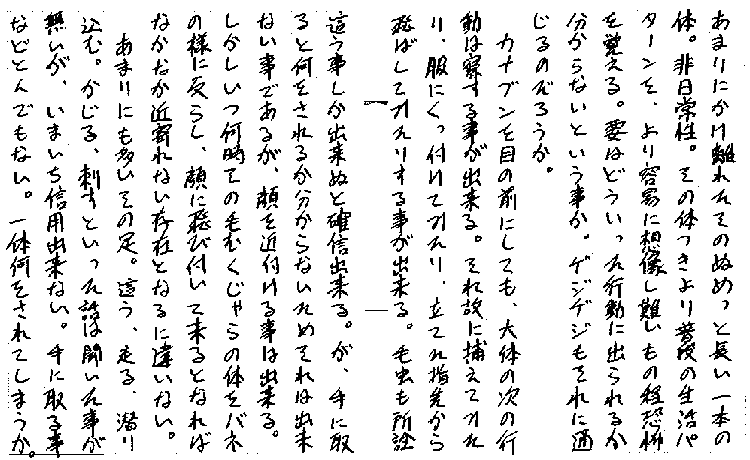 あまりにかけ離れたそのぬめっと長い一本の
体。非日常性。その体つきより普段の生活パ
ターンを、より容易に想像し難いもの程恐怖
を覚える。要はどういった行動に出られるか
分からないという事か。ゲジゲジもそれに通
じるのだろうか。
カナブンを目の前にしても、大体の次の行
動は察する事が出来る。それ故に捕えてみた
り、服にくっ付けてみたり、立てた指先から
飛ばしてみたりする事が出来る。毛虫も所詮
這う事しか出来ぬと確信出来る。が、手に取
ると何をされるか分からないためそれは出来
ない事であるが、顔を近付ける事は出来る。
しかしいつ何時その毛むくじゃらの体をバネ
の様に反らし、顔に飛び付いて来るとなれば
なかなか近寄れない存在となるに違いない。
あまりにも多いその足。這う、走る、潜り
込む。かじる、刺すといった話は聞いた事が
無いが、いまいち信用出来ない。手に取る事
などとんでもない。一体何をされてしまうか。